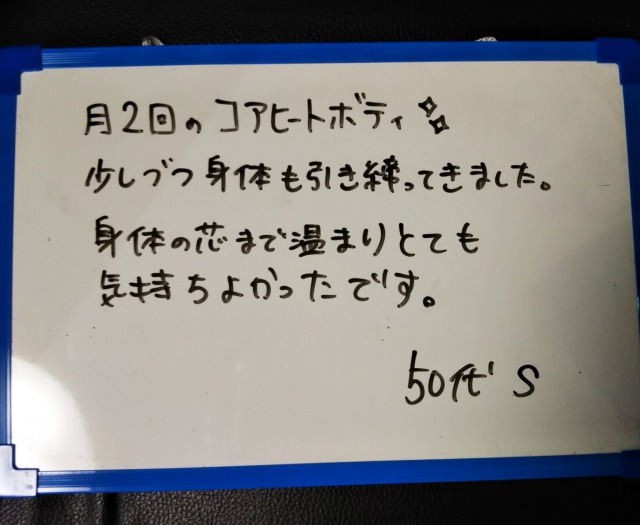 月2回のコアヒートボディ✨
少しづつ身体も引き締ってきました。
身体の芯まで温まりとても
気持ちよかったです。
50代 S